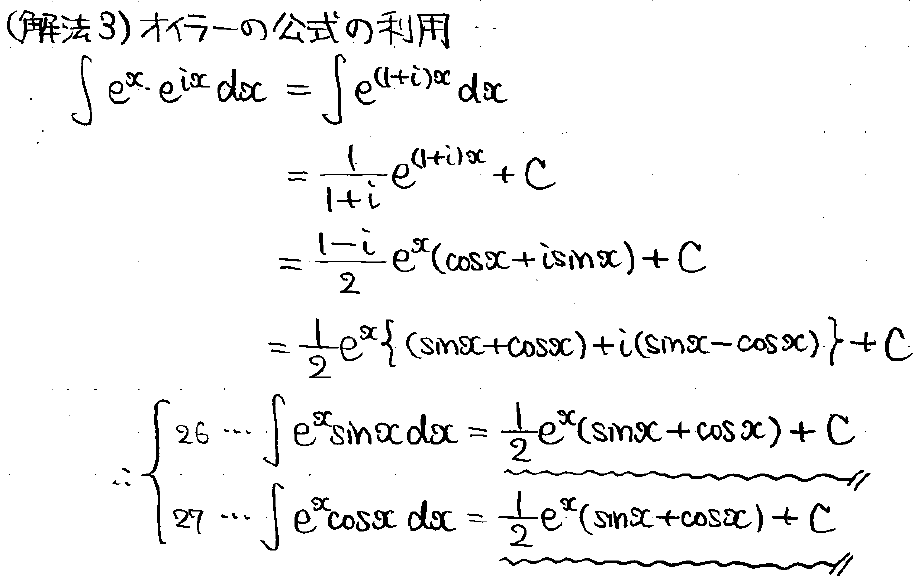 (解法3) オイラーの公式の利用
∫ e^x・e^{ix} dx = ∫ e^{(1+i)x} dx
= \frac{1}{1+i} e^{(1+i)x} + C
= \frac{1-i}{2} e^x (cosx + isinx) + C
= \frac{1}{2} e^x { (sinx + cosx) + i(sinx − cosx) } + C
∴ { 26 … ∫ e^x sinx dx = \frac{1}{2} e^x (sinx + cosx) + C
27 … ∫ e^x cosx dx = \frac{1}{2} e^x (sinx + cosx) + C